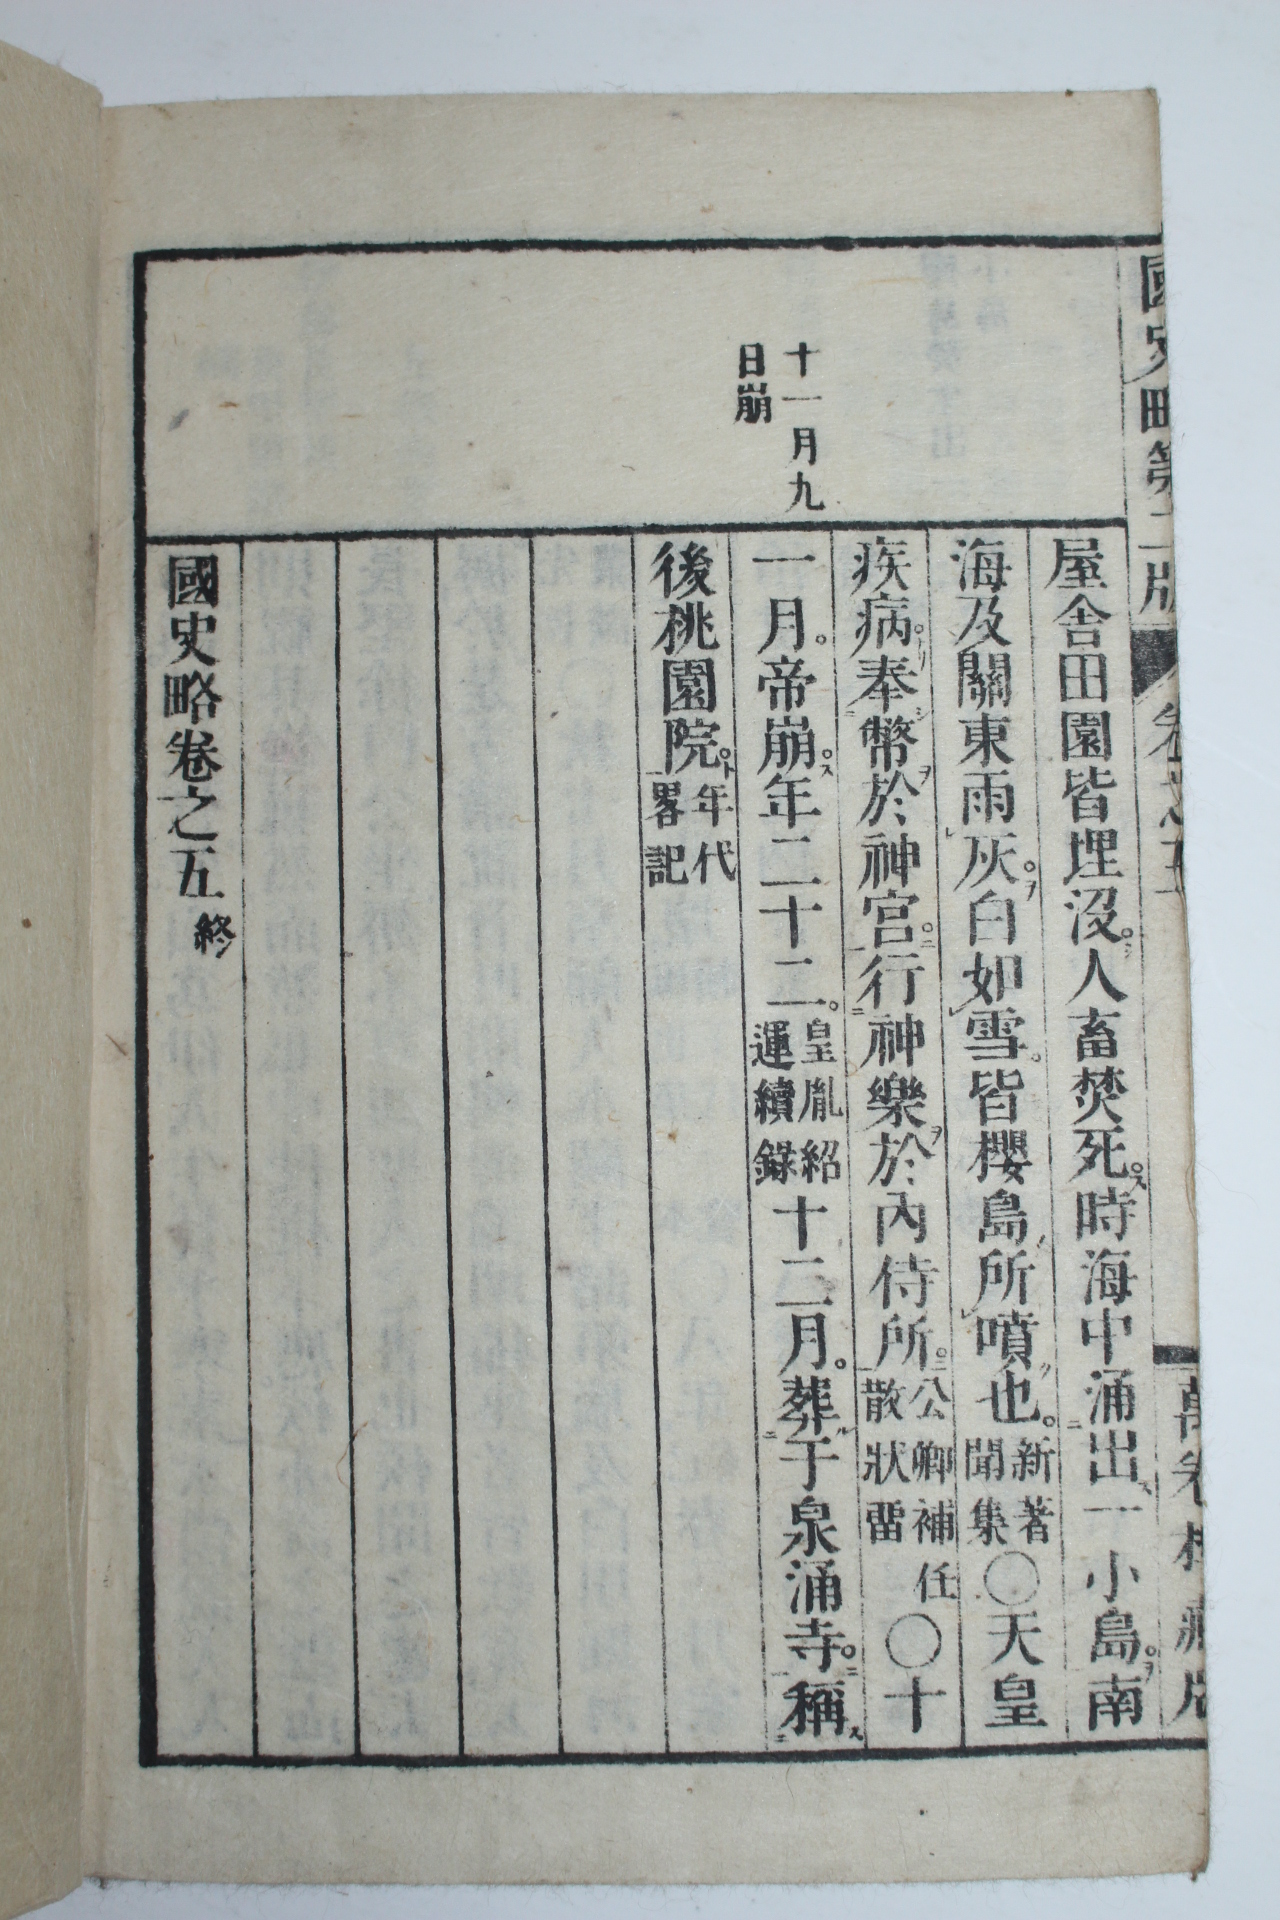 國史略第二版 卷之五 萬卷樓藏版
十一月九
日崩
屋舍田園皆埋沒。人畜焚死。時海中涌出一小島。南
海及關東雨灰。白如雪。皆櫻島所噴也。新著聞集〇天皇
疾病。奉幣於神宮。行神樂於內侍所。公卿補任散狀畱〇十
一月。帝崩。年二十二。皇胤紹運續錄十二月。葬于泉涌寺。稱
後桃園院。年代畧記
國史略卷之五終